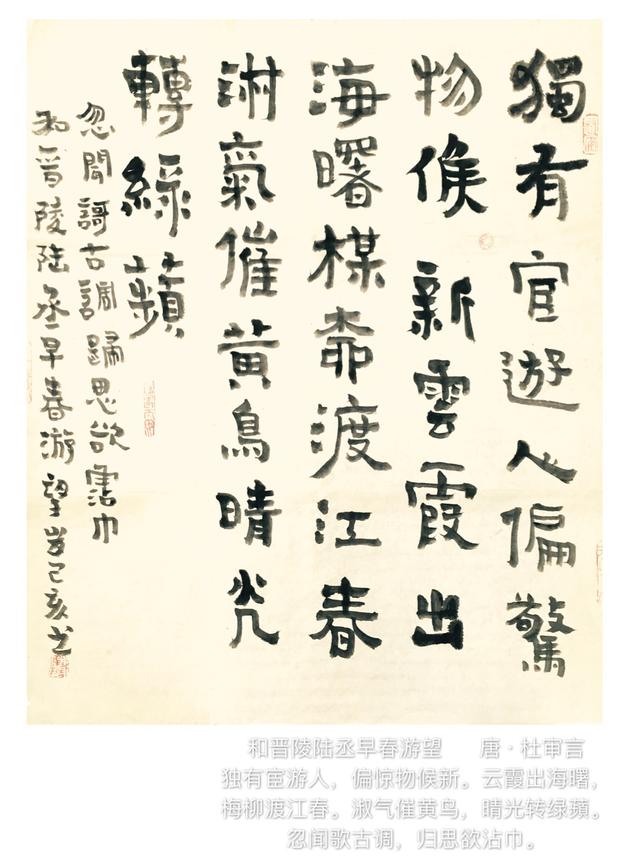 獨有宦遊人偏驚
物候新雲霞出
海曙楳桺渡江春
淑氣催黃鳥晴光
轉綠蘋
忽聞謌古調歸思欲霑巾
和晉陵陆丞早春游望岁己亥书
和晋陵陆丞早春游望　唐·杜审言
独有宦游人，偏惊物候新。云霞出海曙，
梅柳渡江春。淑气催黄鸟，晴光转绿蘋。
忽闻歌古调，归思欲沾巾。